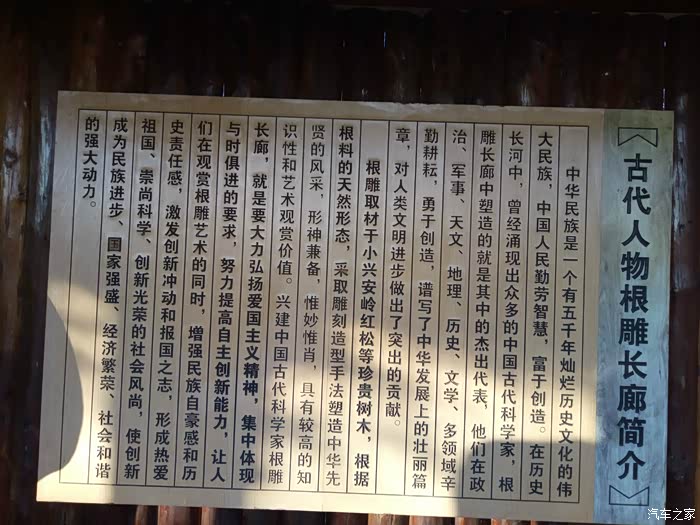 【古代人物根雕长廊简介】
中华民族是一个有五千年灿烂历史文化的伟
大民族，中国人民勤劳智慧，富于创造。在历史
长河中，曾经涌现出众多的中国古代科学家，根
雕长廊中塑造的就是其中的杰出代表，他们在政
治、军事、天文、地理、历史、文学、多领域辛
勤耕耘，勇于创造，谱写了中华发展上的壮丽篇
章，对人类文明进步做出了突出的贡献。
根雕取材于小兴安岭红松等珍贵树木，根据
根料的天然形态，采取雕刻造型手法塑造中华先
贤的风采，形神兼备，惟妙惟肖，具有较高的知
识性和艺术观赏价值。兴建中国古代科学家根雕
长廊，就是要大力弘扬爱国主义精神，集中体现
与时俱进的要求，努力提高自主创新能力，让人
们在观赏根雕艺术的同时，增强民族自豪感和历
史责任感，激发创新冲动和报国之志，形成热爱
祖国、崇尚科学、创新光荣的社会风尚，使创新
成为民族进步、国家强盛、经济繁荣、社会和谐
的强大动力。
汽车之家